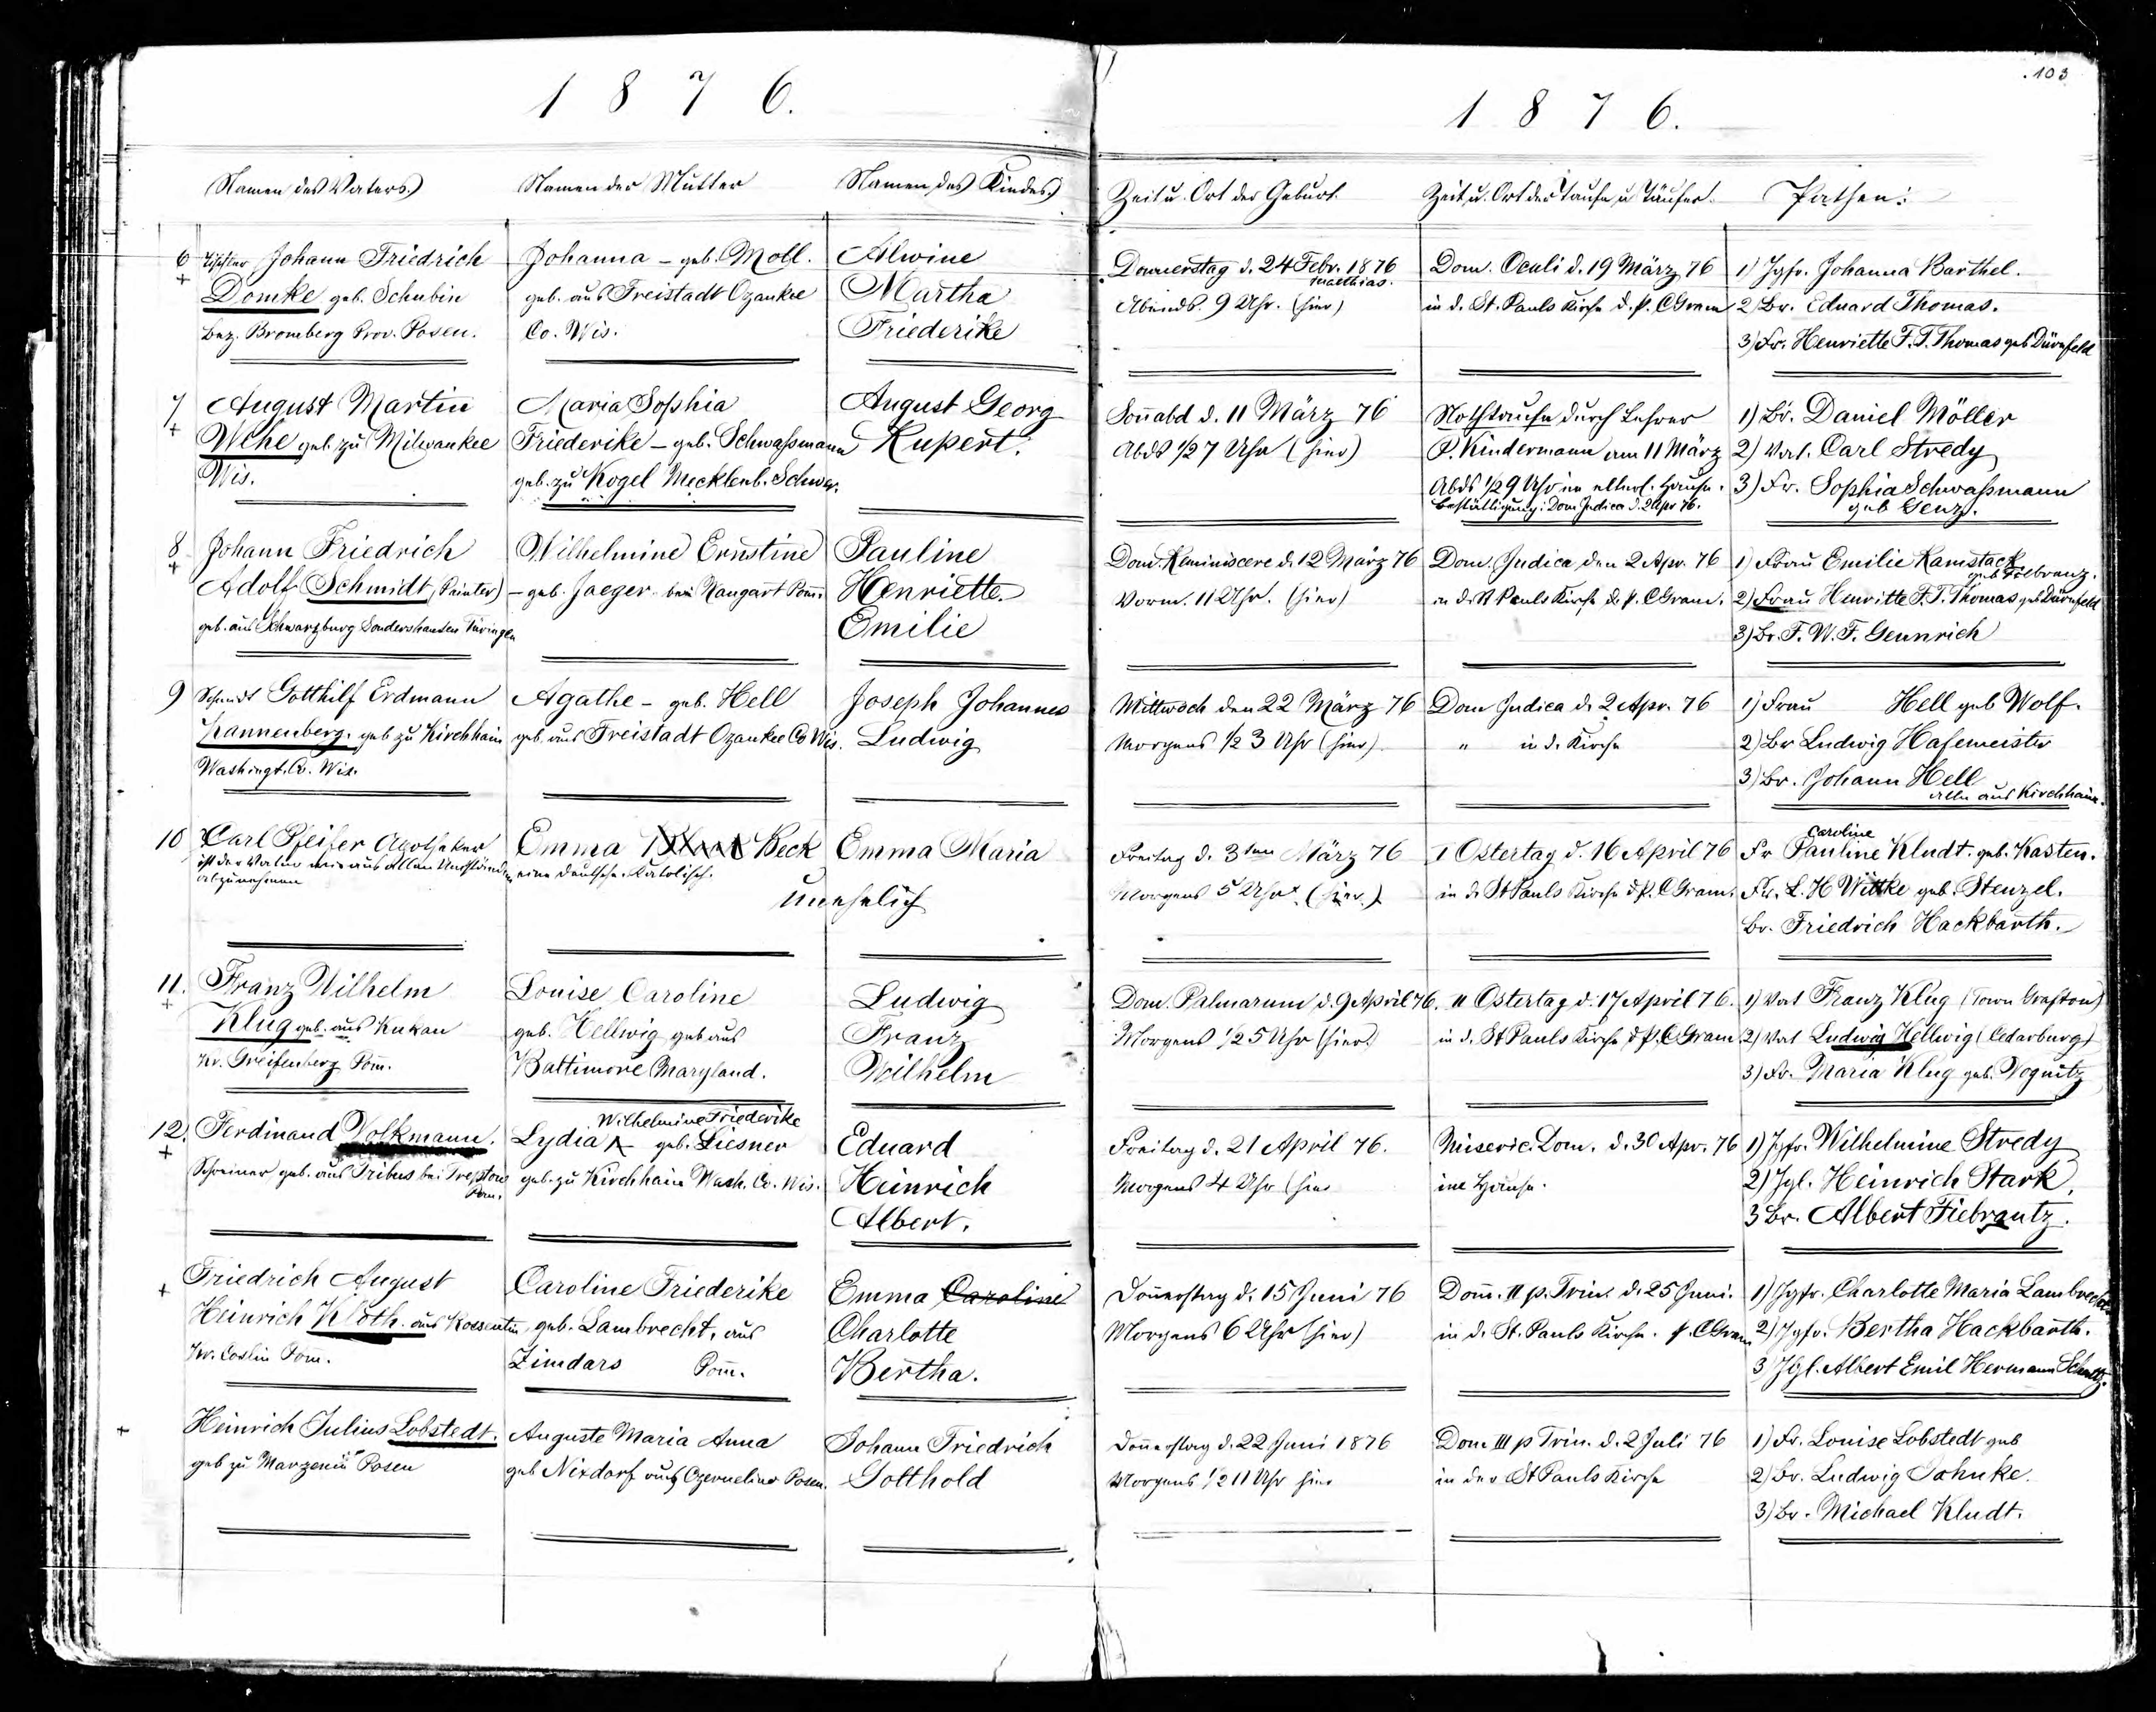 1876.
Namen des Vaters
Namen der Mutter
Namen des Kindes
6 Tischler Johann Friedrich
Domke geb. Schubin
Bez. Bromberg Prov. Posen.
Johanna - geb. Moll.
geb. aus Freistadt Ozaukee
Co. Wis.
Alwine
Martha
Friederike
7 August Martin
Wehe geb. zu Milwaukee
Wis.
Maria Sophia
Friederike - geb. Schwaßmann
geb. zu Kogel Mecklenb. Schwer.
August Georg
Rupert.
8 Johann Friedrich
Adolf Schmidt (Painter)
geb. aus Schwarzburg Sondershausen Türingen
Wilhelmine Ernstine
- geb. Jaeger bei Naugart Pom̄.
Pauline
Henriette
Emilie
9 Schmidt Gotthilf Erdmann
Kannenberg. geb zu Kirchhain
Washingt. Co. Wis.
Agathe - geb. Hell
geb. aus Freistadt Ozaukee Co Wis.
Joseph Johannes
Ludwig
10 Carl Pfeifer Apotheker
ist der Vater wie aus allen Umständen
abzunehmen
Emma Beck
eine Deutsche. Katolisch.
Emma Maria
unehelich
11. Franz Wilhelm
Klug geb. aus Kukan
Kr. Greifenberg Pom̄.
Louise Caroline
geb. Hellwig geb aus
Baltimore Maryland.
Ludwig
Franz
Wilhelm
12. Ferdinand Volkmann.
Schreiner geb. aus Tribus bei Treptow
Pom.
Wilhelmine Friederike
Lydia - geb. Liesner
geb. zu Kirchhain Wash. Co. Wis.
Eduard
Heinrich
Albert.
Friedrich August
Heinrich Kloth. aus Kossentin
Kr. Coslin Pom̄.
Caroline Friederike
geb. Lambrecht, aus
Zimdars Pom̄.
Emma Caroline
Charlotte
Bertha.
Heinrich Julius Lobstedt.
geb zu Marzenin Posen
Auguste Maria Anna
geb Nixdorf aus Posen.
Johann Friedrich
Gotthold
103
1876.
Zeit u. Ort der Geburt.
Zeit u. Ort der Taufe u Täufer.
Pathen:
Donnerstag d. 24 Febr. 1876
Matthias.
Abends. 9 Uhr. (hier)
Dom. Oculi d. 19 März 76
in d. St. Pauls Kirche d. P. CGram
1) Jgfr. Johanna Barthel.
2) Br. Eduard Thomas.
3) Fr. Henriette F. T. Thomas geb Dürnfeld
Son̄abd d. 11 März 76
Abds ½7 Uhr (hier)
Nothtaufe durch Lehrer
P. Kindermann am 11 März
Abds ½9 Uhr im elterl. Hause.
Bestättigung: Dom Judica d. 2 Apr 76.
1) Br. Daniel Möller
2) Vat. Carl Stredy
3) Fr. Sophia Schwaßmann
geb Genz.
Dom. Reminiscere d. 12 März 76
Vorm. 11 Uhr. (hier)
Dom. Judica den 2 Apr. 76
in d. St Pauls Kirche d. P. CGram.
1) Frau Emilie Ramstack
geb Fiebranz.
2) Frau Henritte F. T. Thomas geb Dürnfeld
3) Br. F. W. F. Gennrich
Mittwoch den 22 März 76
Morgens ½3 Uhr (hier)
Dom Judica d. 2 Apr. 76
" in d. Kirche
1) Frau Hell geb Wolf.
2) Br Ludwig Hasemeister
3) Br. Johann Hell
alle aus Kirchhain.
Freitag d. 3ten März 76
Morgens 5 Uhr. (hier.)
I Ostertag d. 16 April 76
in d. St Pauls Kirche d P. C Gram.
Caroline
Fr Pauline Kludt. geb. Kasten.
Fr. L. H Wittke geb. Stenzel.
Br. Friedrich Hackbarth.
Dom. Palmarum d. 9 April 76.
Morgens ½5 Uhr (hier)
II Ostertag d. 17 April 76.
in d. St Pauls Kirche d P. C Gram.
1) Vat Franz Klug (Town Grafton)
2) Vat Ludwig Hellwig (Cedarburg)
3) Fr. Maria Klug geb. Nognitz
Freitag d. 21 April 76.
Morgens 4 Uhr (hier
Miseric. Dom. d. 30 Apr. 76
im Hause.
1) Jgfr. Wilhelmine Stredy
2) Jgl. Heinrich Stark,
3 Br. Albert Fiebrantz.
Don̄erstag d. 15 Juni 76
Morgens 6 Uhr (hier)
Dom̄. II p. Trin. d. 25 Juni.
in d. St. Pauls Kirche. P. CGram
1) Jgfr. Charlotte Maria Lambrecht
2) Jgfr. Bertha Hackbarth.
3) Jgl. Albert Emil Hermann Schultz.
Don̄erstag d. 22 Juni 1876
Morgens ½11 Uhr hier
Dom III p Trin. d. 2 Juli 76
in der St Pauls Kirche
1) Fr. Louise Lobstedt geb
2) Br. Ludwig Jahnke.
3) Br. Michael Kludt.